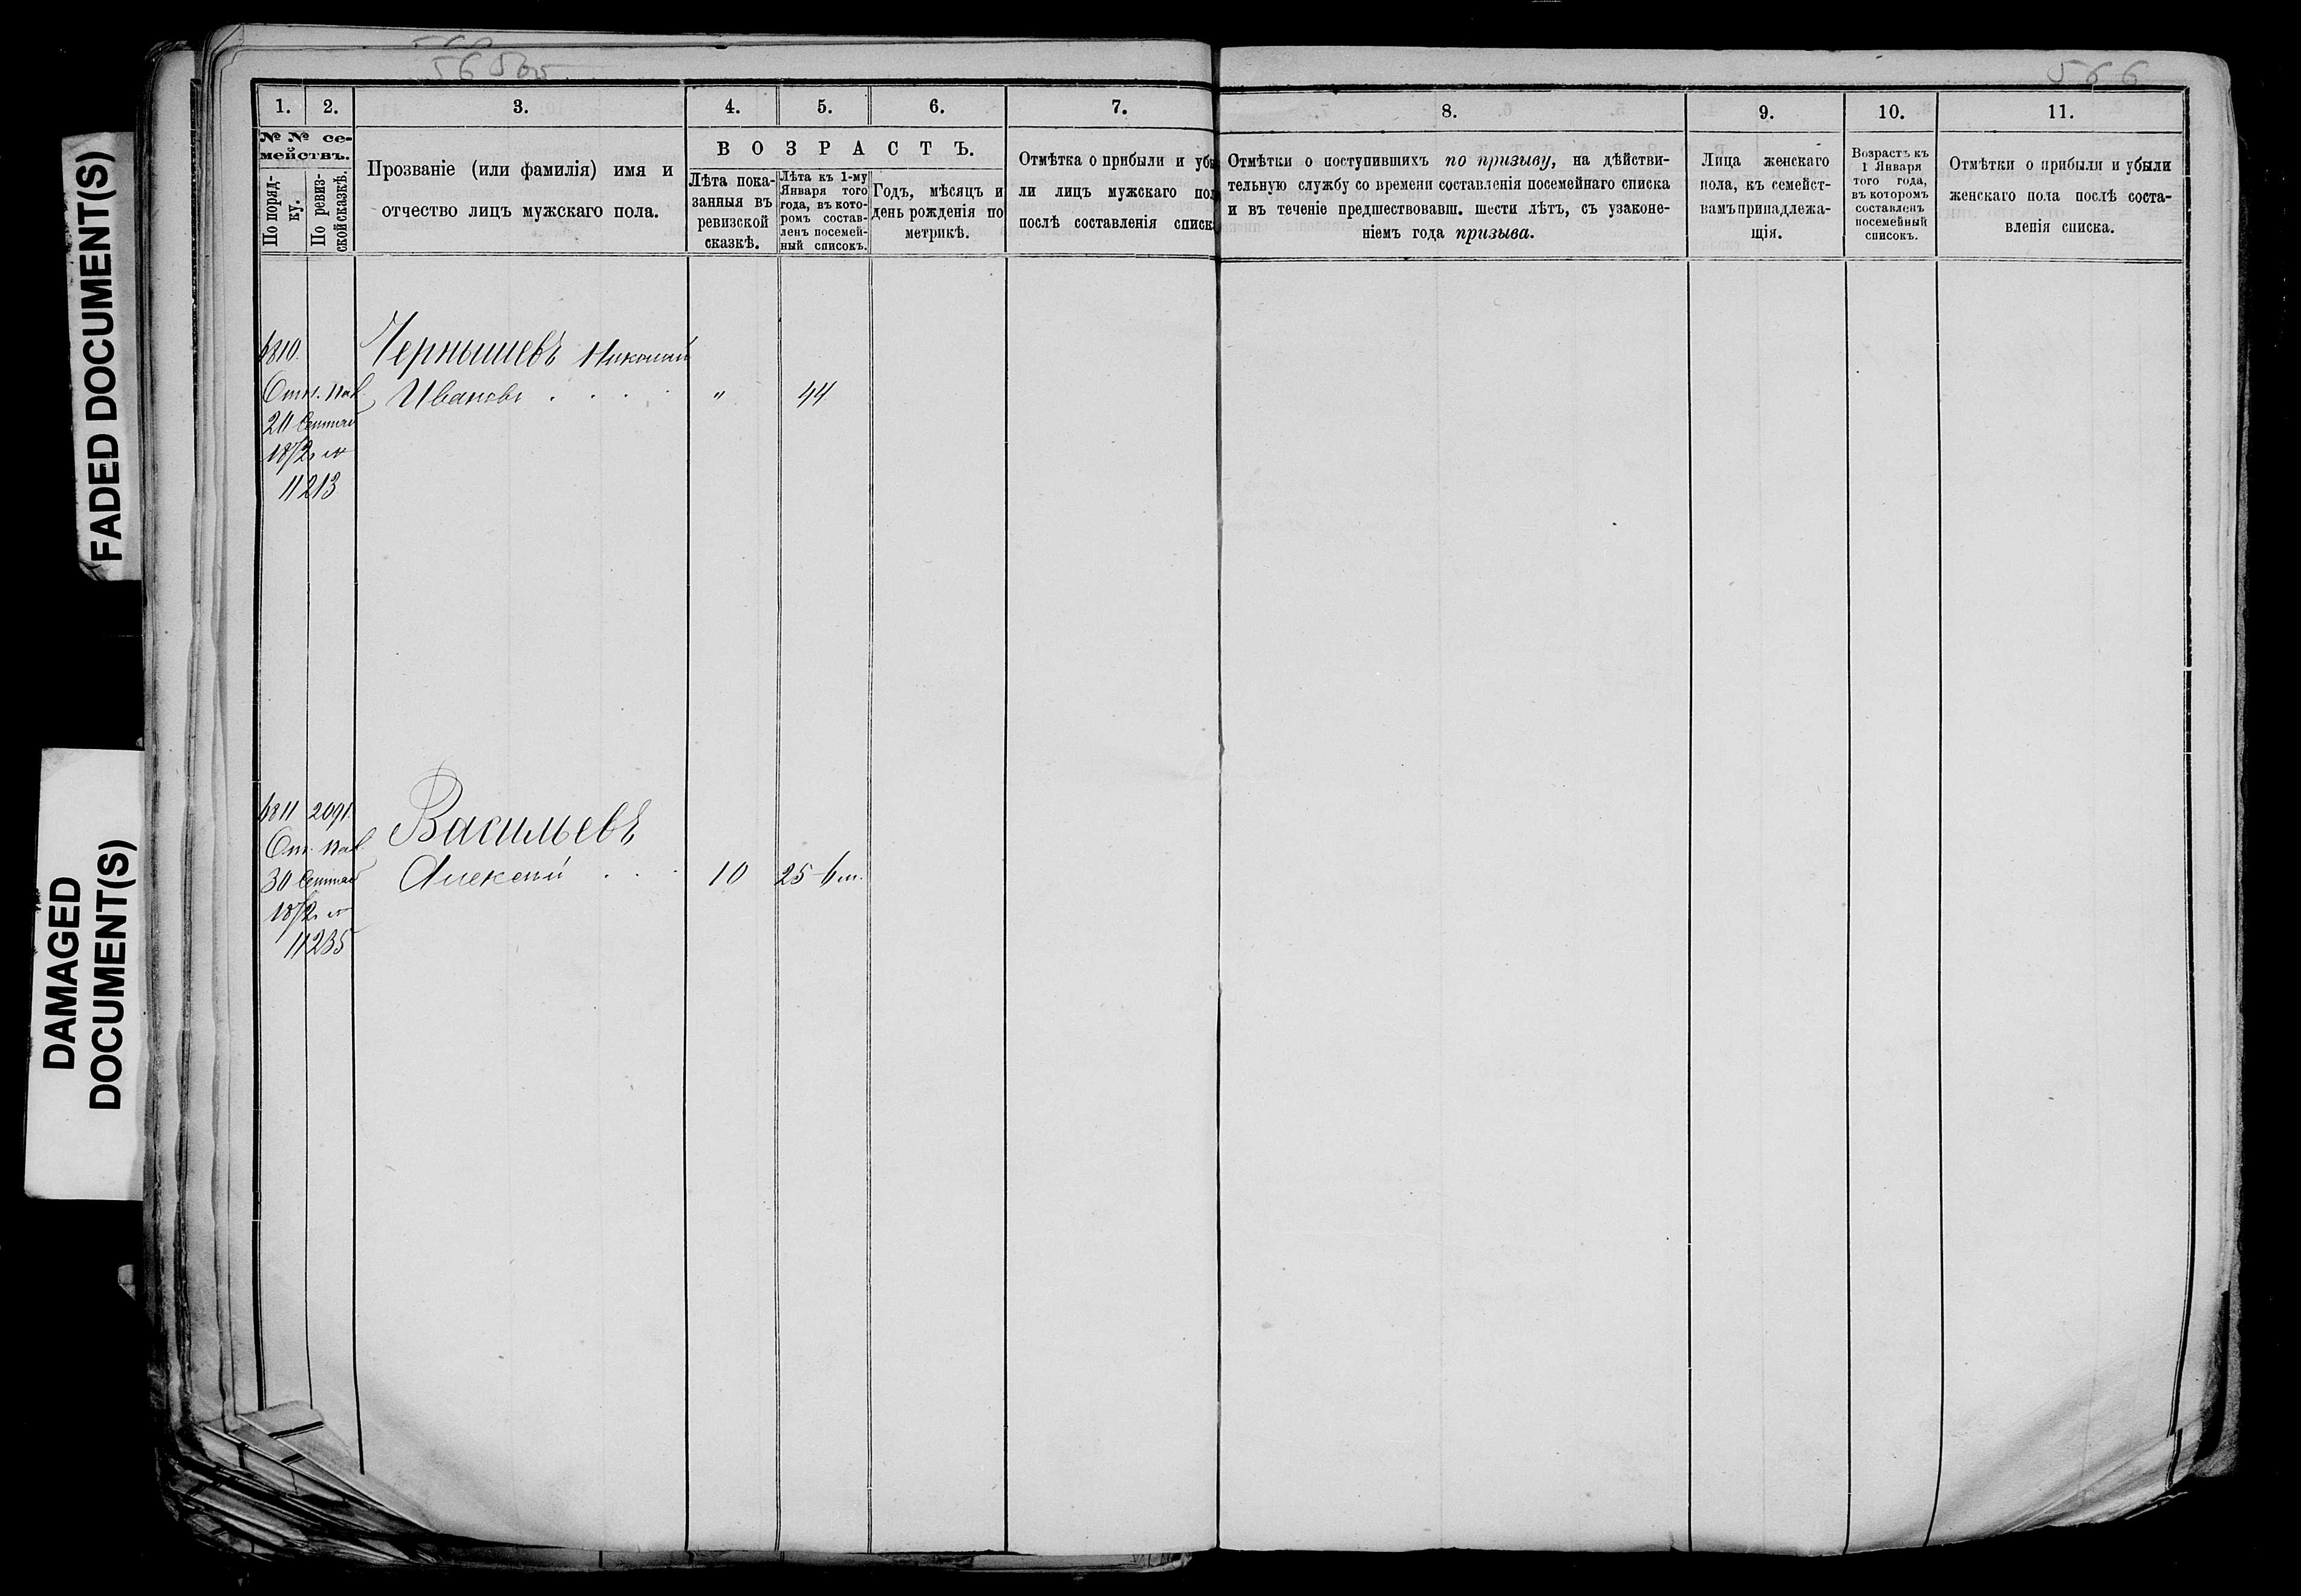 56 565
566
FADED DOCUMENT(S)
DAMAGED
DOCUMENT(S)
1. 2. 3. 4. 5. 6. 7.
№ № се-
мействъ.
По поряд-
ку.
По ревиз-
ской сказкѣ.
Прозваніе (или фамилія) имя и
отчество лицъ мужскаго пола.
ВОЗРАСТЪ.
Лѣта пока-
занныя въ
ревизской
сказкѣ.
Лѣта къ 1-му
Января того
года, въ кото-
ромъ состав-
ленъ посемей-
ный списокъ.
Годъ, мѣсяцъ и
день рожденія по
метрикѣ.
Отмѣтка о прибыли и убы
ли лицъ мужскаго пол
послѣ составленія списк
8. 9. 10. 11.
Отмѣтки о поступившихъ по призыву, на дѣйстви-
тельную службу со времени составленія посемейнаго списка
и въ теченіе предшествовавш. шести лѣтъ, съ узаконе-
ніемъ года призыва.
Лица женскаго
пола, къ семейст-
вамъ принадлежа-
щія.
Возрастъ къ
1 Января
того года,
въ которомъ
составленъ
посемейный
списокъ.
Отмѣтки о прибыли и убыли
женскаго пола послѣ соста-
вленія списка.
6810. Чернышевъ Николай
Иванов . . . . " 44
11213
6811 2091. Васильевъ
Алексѣй . . . 10 25-6 м.
11235